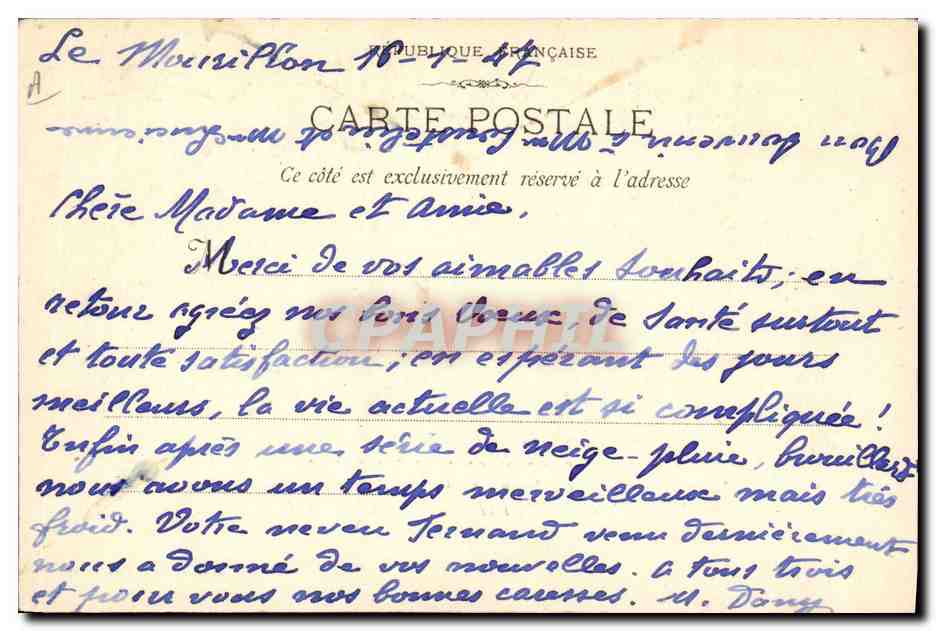 RÉPUBLIQUE FRANÇAISE
Le Mourillon 16-1-47
CARTE POSTALE
Bon Souvenir à Mme
Ce côté est exclusivement réservé à l'adresse
Chère Madame et Annie,
Merci de vos aimables souhaits; en
retour agréez nos bons voeux, de santé surtout
et toute satisfaction; en espérant des jours
meilleurs, la vie actuelle est si compliquée!
Enfin après une série de neige-pluie, brouillard
nous avons un temps merveilleux mais très
froid. Votre neveu Fernand venu dernièrement
nous a donné de vos nouvelles. a tous trois
et pour vous nos bonnes caresses. M. Dany
CPAPHIL
A